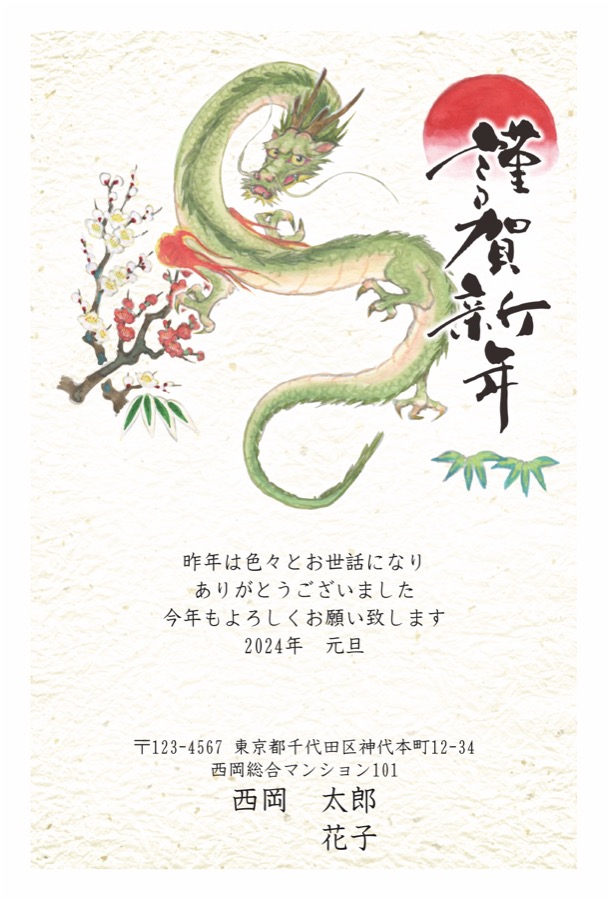 謹賀新年
昨年は色々とお世話になり
ありがとうございました
今年もよろしくお願い致します
2024年　元旦
〒123-4567 東京都千代田区神代本町12-34
西岡総合マンション101
西岡　太郎
花子